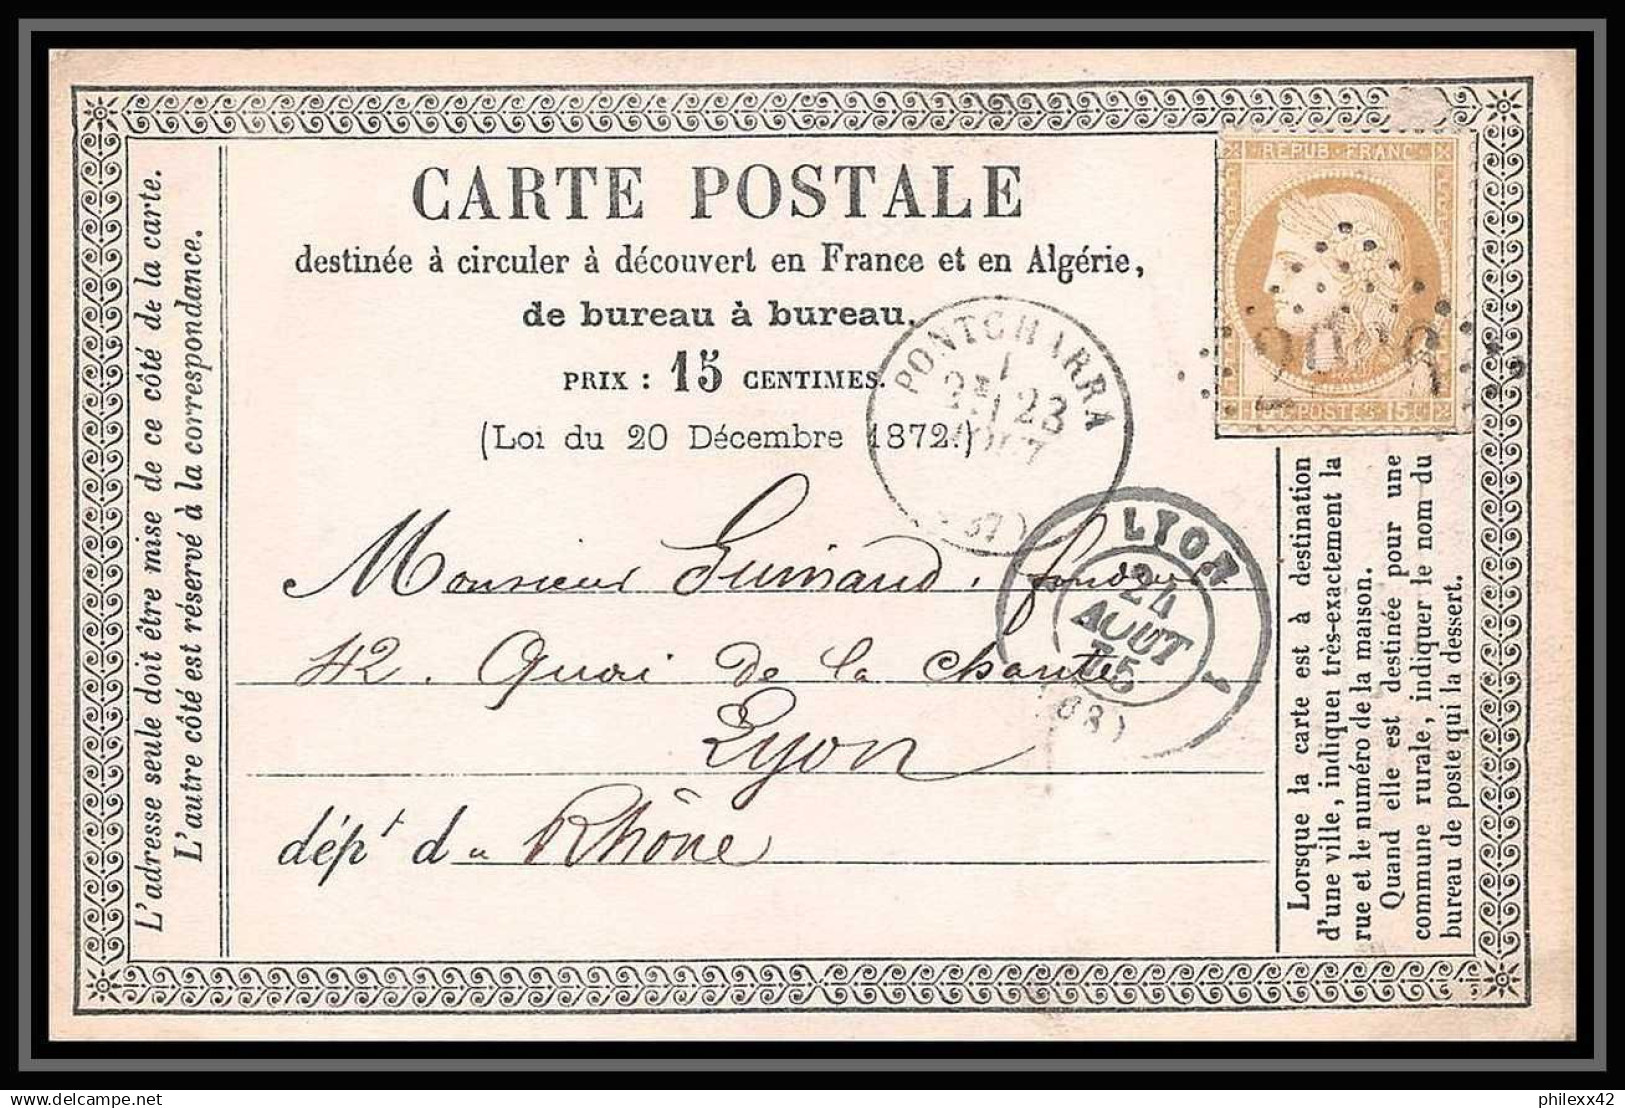 CARTE POSTALE
destinée à circuler à découvert en France et en Algérie,
de bureau à bureau.
PRIX : 15 CENTIMES.
(Loi du 20 Décembre 1872.)
L'adresse seule doit être mise de ce côté de la carte.
L'autre côté est réservé à la correspondance.
REPUB · FRANC
15 C. POSTES 15 C.
PONTCHARRA
23
LYON
24
AOUT
75
Monsieur Guinand, fondeur
42. Quai de la
Lyon
dépt d u Rhône
Lorsque la carte est à destination
d'une ville, indiquer très-exactement la
rue et le numéro de la maison.
Quand elle est destinée pour une
commune rurale, indiquer le nom du
bureau de poste qui la dessert.
Delcampe.net
philexx42